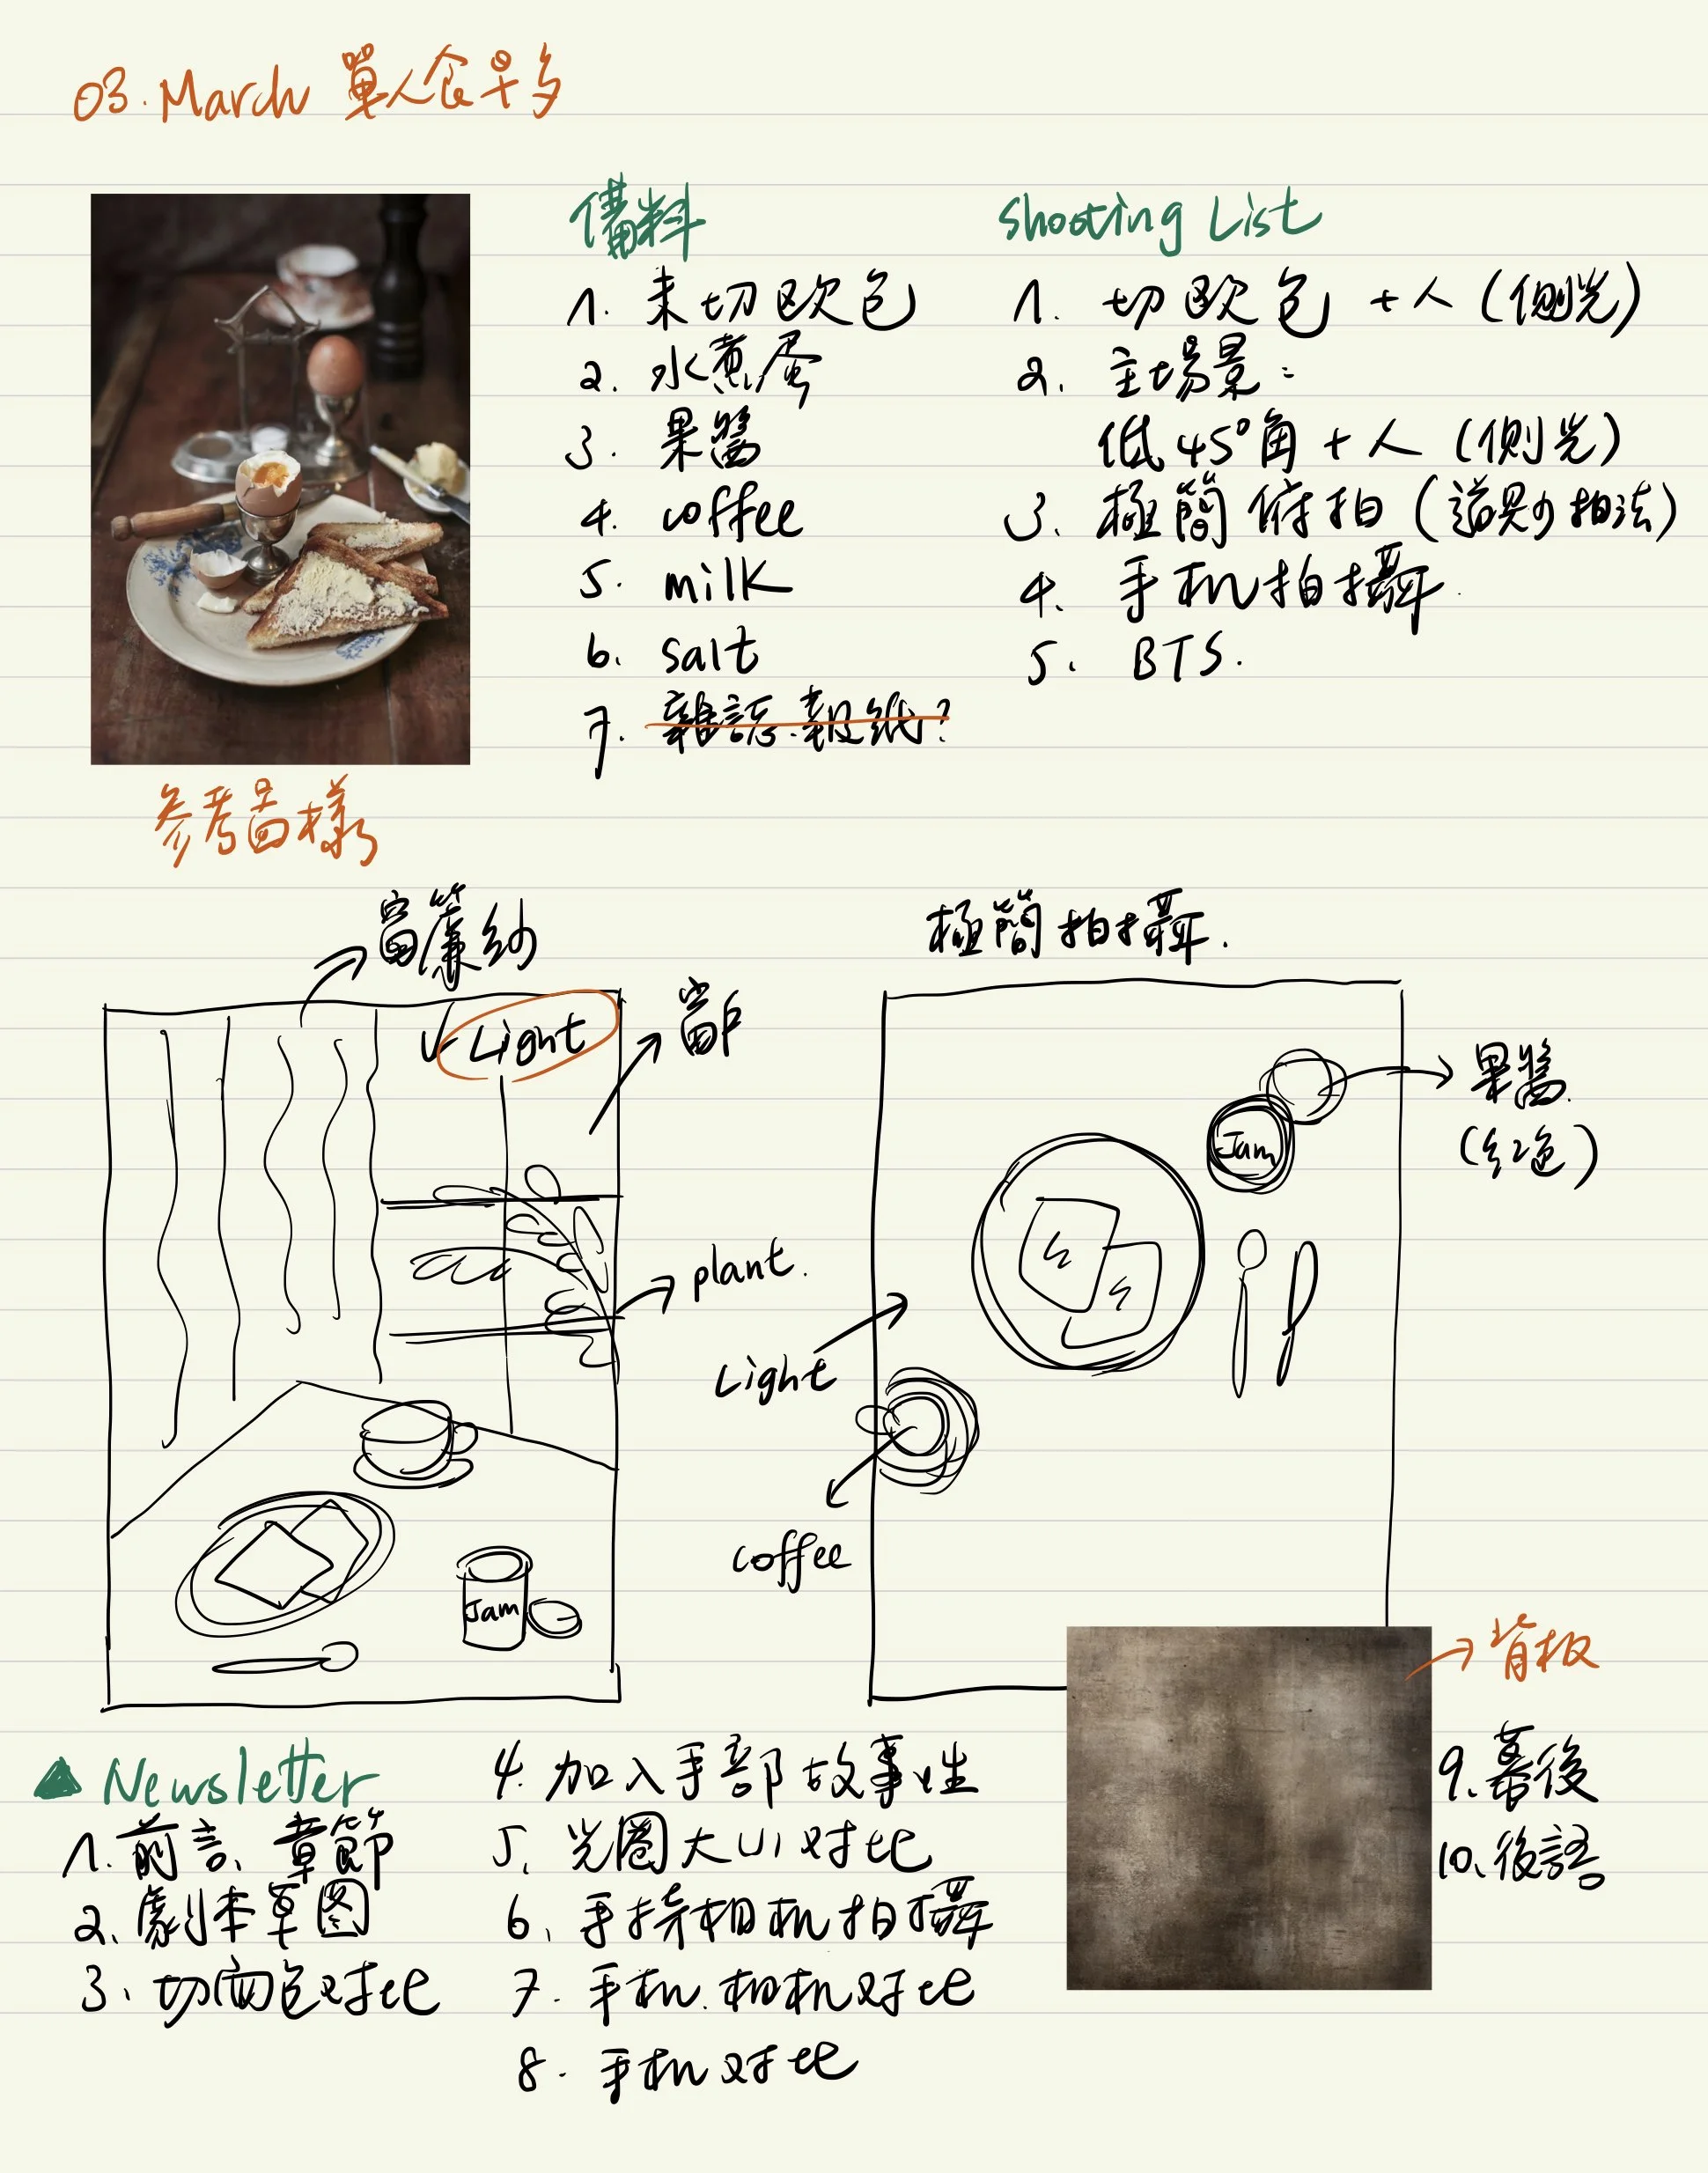 03. March 單人食早多
備料
1. 未切欧包
2. 水煮蛋
3. 果醬
4. coffee
5. milk
6. salt
7. 雜誌.報紙?
Shooting List
1. 切欧包 + 人 (側光)
2. 主場景:
低45°角 + 人 (側光)
3. 極簡俯拍 (拍法)
4. 手机拍攝.
5. BTS.
参考圖樣
窗簾紗
Light
窗戶
plant.
Jam
極簡拍攝.
果醬.
(红色)
Jam
Light
coffee
背板
Newsletter
1. 前言、章節
2. 劇本草图
3. 切面包对比
4. 加入手部故事性
5. 光圈大小对比
6. 手持相机拍攝
7. 手机.相机对比
8. 手机对比
9. 幕後
10. 後語